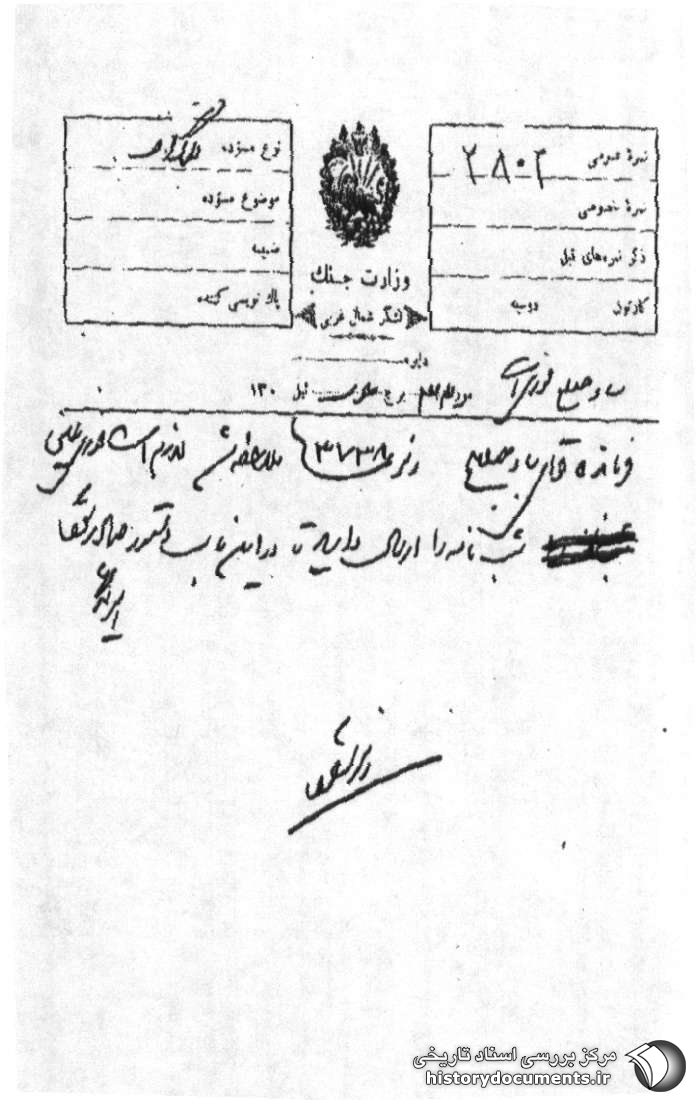 نمرهٔ عمومی ۲۸۰۲
نمرهٔ خصوصی
ذکر نمره‌های قبل
کارتون دوسیه
وزارت جنگ
لشگر شمال غربی
نوع مسوّده تلگراف
موضوع مسوّده
ضمیمه
پاک نویسی کننده
دایره
مورخه برج ئیل ۱۳۰
ساوجبلاغ فوری است
فرمانده قوای ساوجبلاغ نمره ۳۷۳۸ ملاحظه شد لازم است فوری
شب نامه را ارسال دارید تا در این باب دستور صادر
مرکز بررسی اسناد تاریخی
historydocuments.ir